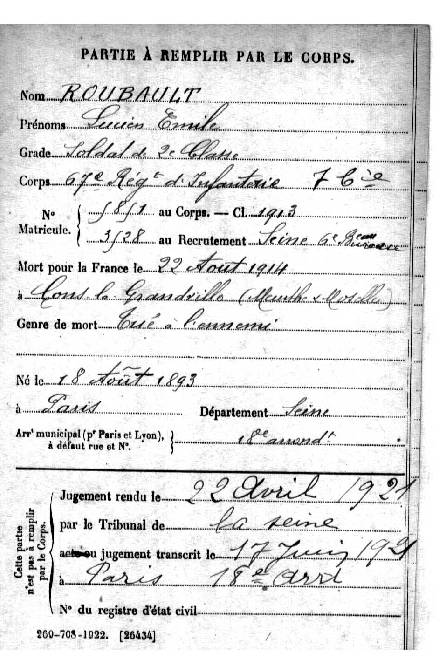 PARTIE À REMPLIR PAR LE CORPS.
Nom ROUBAULT
Prénoms Lucien Emile
Grade Soldat de 2e Classe
Corps 67e Régt d'Infanterie 7 Cie
No Matricule. { 5851 au Corps. — Cl. 1913
3528 au Recrutement Seine 6e Bureau
Mort pour la France le 22 Août 1914
à Cons la Grandville (Meurthe & Moselle)
Genre de mort Tué à l'ennemi
Né le 18 Août 1893
à Paris Département Seine
Arrt municipal (pr Paris et Lyon), à défaut rue et No. } 18e arrondt
Cette partie n'est pas à remplir par le Corps.
Jugement rendu le 22 Avril 1921
par le Tribunal de la Seine
acte ou jugement transcrit le 17 Juin 1921
à Paris 18e Arrt
No du registre d'état civil
260-708-1922. [26434]